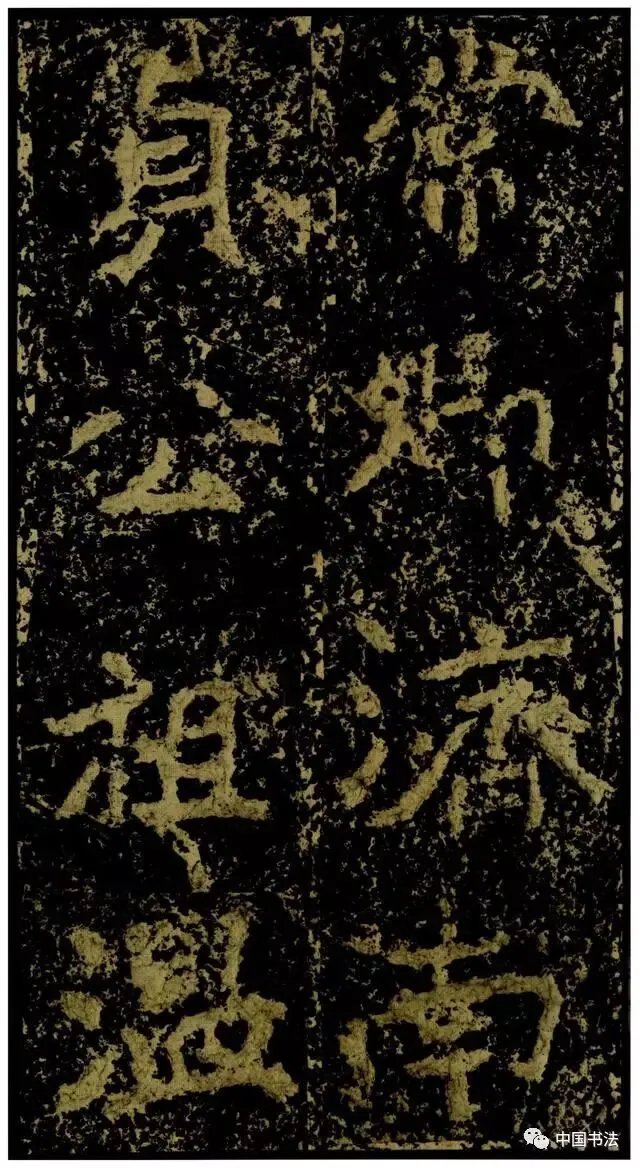 常卿濟南
貞公祖溫
中国书法